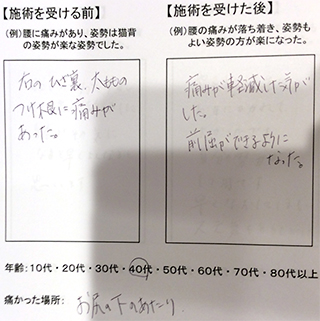 【施術を受ける前】
(例)腰に痛みがあり、姿勢は猫背
の姿勢が楽な姿勢でした。
右の ひざ裏、太ももの
つけ根に痛みが
あった。
【施術を受けた後】
(例)腰の痛みが落ち着き、姿勢も
よい姿勢の方が楽になった。
痛みが軽減した気が
した。
前屈ができるように
なった。
年齢:10代・20代・30代・40代・50代・60代・70代・80代以上
痛かった場所: お尻の下のあたり